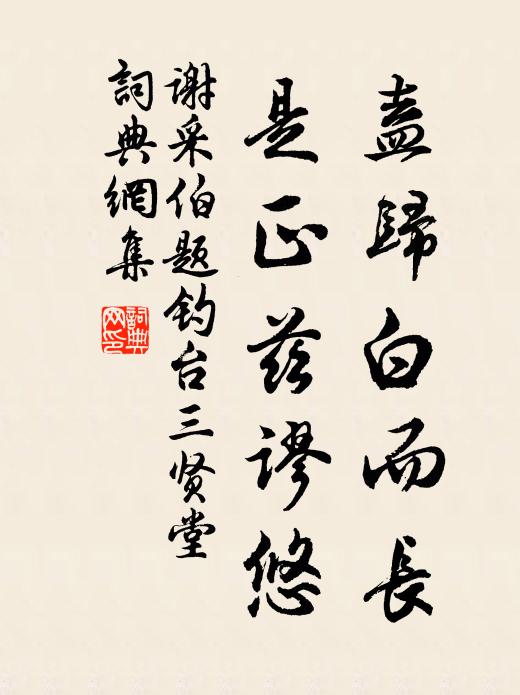 盍歸白而長
是正兹谬悠
谢采伯题钓台三贤堂
詞典網集
詞典
网印